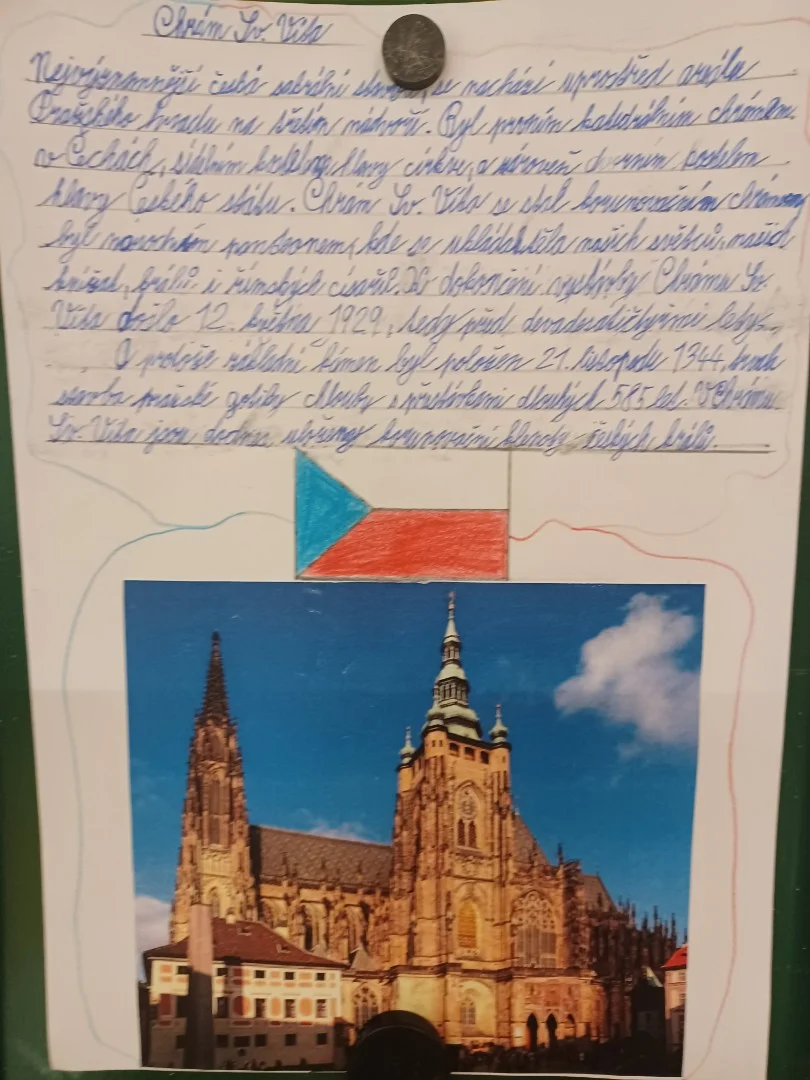 Chrám Sv. Víta
Nejvýznamnější česká sakrální stavba, se nachází uprostřed areálu
Pražského hradu na třetím nádvoří. Byl prvním katedrálním chrámem
v Čechách, sídlním kostelem hlavy církve, a zároveň kostelem
hlavy Českého státu. Chrám Sv. Víta se stal korunovačním chrámem
byl národním panteonem, kde se ukládala těla našich světců, našich
knížat, králů i římských císařů. K dokončení výstavby Chrámu Sv.
Víta došlo 12. května 1929, tedy před devadesátičtyřmi lety.
A protože základní kámen byl položen 21. listopadu 1344, trvala
stavba pražské gotiky s přestávkami dlouhých 585 let. V Chrámu
Sv. Víta jsou dodnes uloženy korunovační klenoty českých králů.